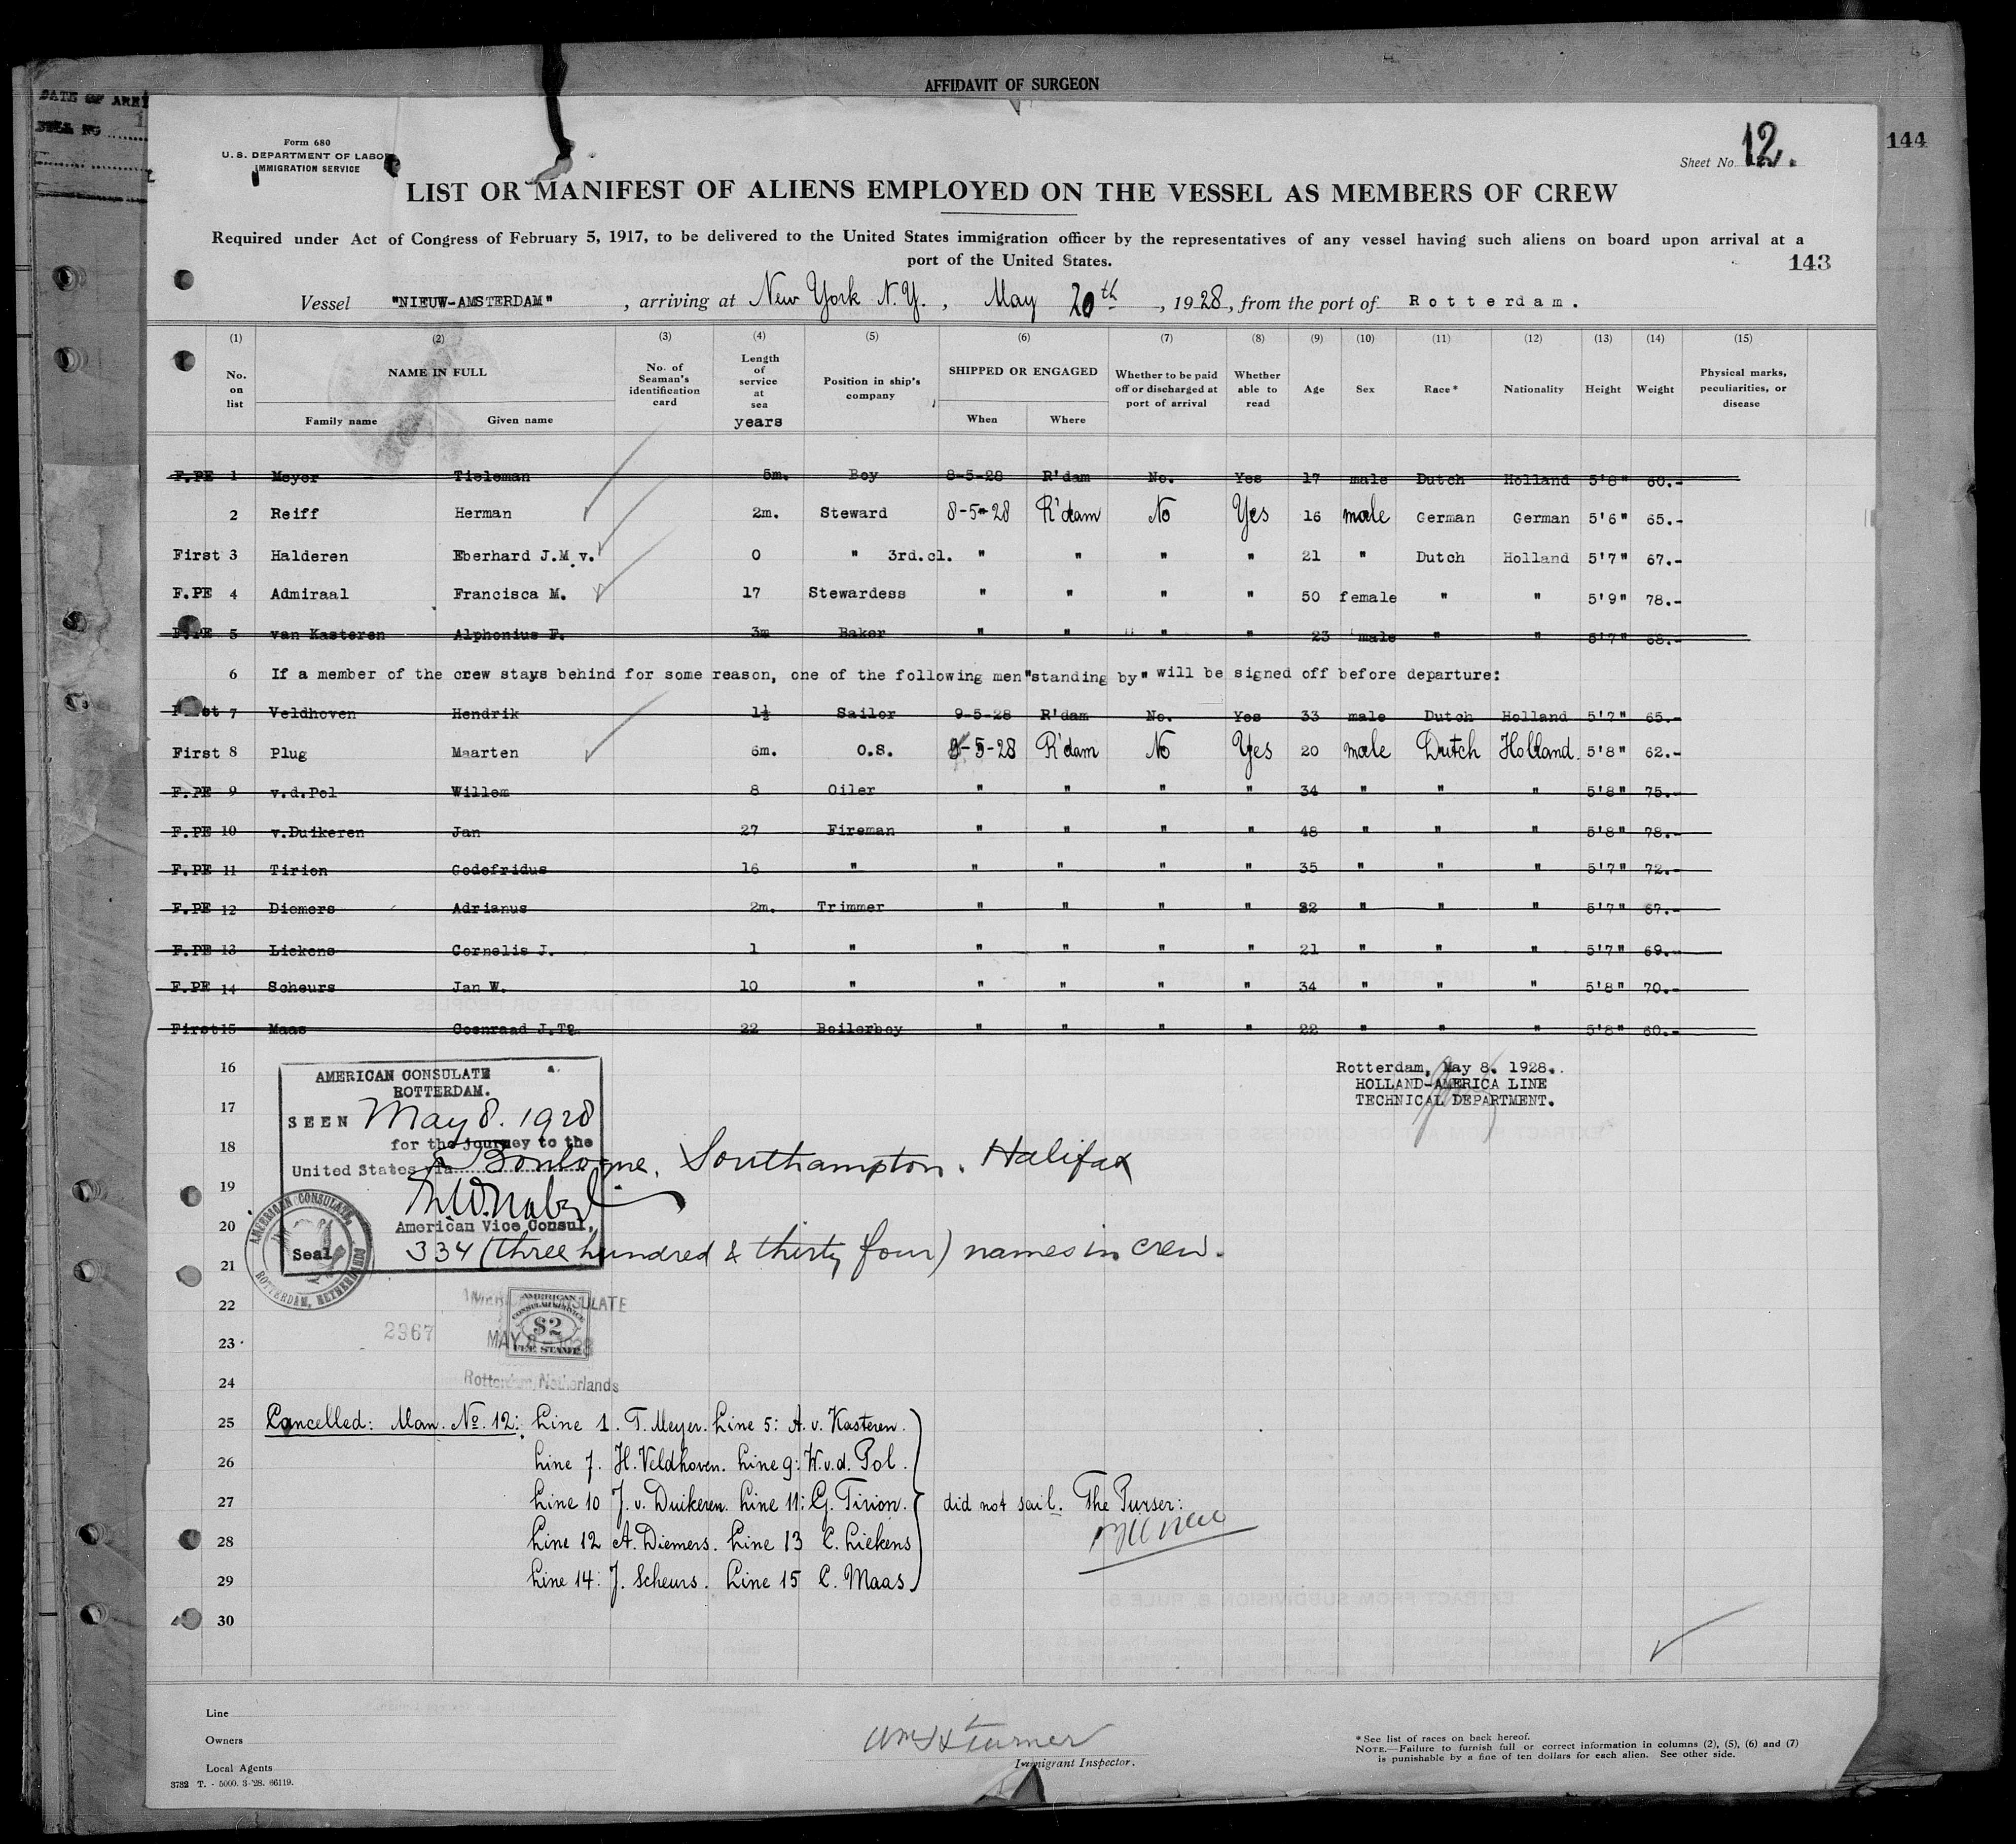 AFFIDAVIT OF SURGEON
144
Form 680
U. S. DEPARTMENT OF LABOR
IMMIGRATION SERVICE
Sheet No. 12.
LIST OR MANIFEST OF ALIENS EMPLOYED ON THE VESSEL AS MEMBERS OF CREW
Required under Act of Congress of February 5, 1917, to be delivered to the United States immigration officer by the representatives of any vessel having such aliens on board upon arrival at a
port of the United States.
143
Vessel "NIEUW-AMSTERDAM", arriving at New York N.Y., May 20th, 1928, from the port of Rotterdam.
(1) (2) (3) (4) (5) (6) (7) (8) (9) (10) (11) (12) (13) (14) (15)
No. on list NAME IN FULL Family name Given name No. of Seaman's identification card Length of service at sea years Position in ship's company SHIPPED OR ENGAGED When Where Whether to be paid off or discharged at port of arrival Whether able to read Age Sex Race* Nationality Height Weight Physical marks, peculiarities, or disease
F.PE 1 Meyer Tieleman 5m. Boy 8-5-28 R'dam No. Yes 17 male Dutch Holland 5'8" 60.-
2 Reiff Herman 2m. Steward 8-5-28 R'dam No Yes 16 male German German 5'6" 65.-
First 3 Halderen Eberhard J.M.v. 0 " 3rd.cl. " " " " 21 " Dutch Holland 5'7" 67.-
F.PE 4 Admiraal Francisca M. 17 Stewardess " " " " 50 female " " 5'9" 78.-
F.PE 5 van Kasteren Alphonius F. 3m Baker " " " " 23 male " " 5'7" 68.-
6 If a member of the crew stays behind for some reason, one of the following men "standing by" will be signed off before departure:
First 7 Veldhoven Hendrik 1½ Sailor 9-5-28 R'dam No. Yes 33 male Dutch Holland 5'7" 65.-
First 8 Plug Maarten 6m. O.S. 8-5-28 R'dam No Yes 20 male Dutch Holland. 5'8" 62.-
F.PE 9 v.d.Pol Willem 8 Oiler " " " " 34 " " " 5'8" 75.-
F.PE 10 v.Duikeren Jan 27 Fireman " " " " 48 " " " 5'8" 78.-
F.PE 11 Tirion Godefridus 16 " " " " " 35 " " " 5'7" 72.-
F.PE 12 Diemers Adrianus 2m. Trimmer " " " " 22 " " " 5'7" 67.-
F.PE 13 Liekens Cornelis J. 1 " " " " " 21 " " " 5'7" 69.-
F.PE 14 Scheurs Jan W. 10 " " " " " 34 " " " 5'8" 70.-
First 15 Maas Coenraad J. 22 Boilerboy " " " " 22 " " " 5'8" 60.-
16
Rotterdam, May 8. 1928.
HOLLAND-AMERICA LINE
TECHNICAL DEPARTMENT.
AMERICAN CONSULATE
ROTTERDAM.
17
SEEN May 8. 1928
18
for the journey to the
United States via Boulogne, Southampton, Halifax
19
20
American Vice Consul,
AMERICAN CONSULATE, ROTTERDAM, NETHERLANDS
Seal
334 (three hundred & thirty four) names in crew.
21
22
AMERICAN CONSULATE
AMERICAN CONSULAR SERVICE $2 FEE STAMP
2367
MAY 8 - 1928
23
Rotterdam, Netherlands
24
25 Cancelled: Man. No. 12: Line 1. T. Meyer. Line 5: A. v. Kasteren.
26 Line 7. H. Veldhoven. Line 9: W. v. d. Pol.
27 Line 10 J. v. Duikeren. Line 11: G. Tirion. did not sail. The Purser:
28 Line 12 A. Diemers. Line 13 C. Liekens
29 Line 14: J. Scheurs. Line 15 C. Maas.
30
Line
Owners
Local Agents
3732 T. - 5000. 3-'28. 66119.
Wm H Turner
Immigrant Inspector.
* See list of races on back hereof.
NOTE.—Failure to furnish full or correct information in columns (2), (5), (6) and (7)
is punishable by a fine of ten dollars for each alien. See other side.